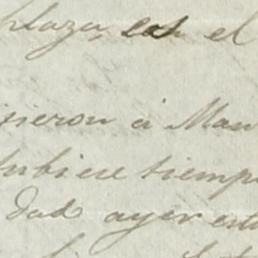 plaza con el
sieron á Man
tubiese siemp
dad ayer est